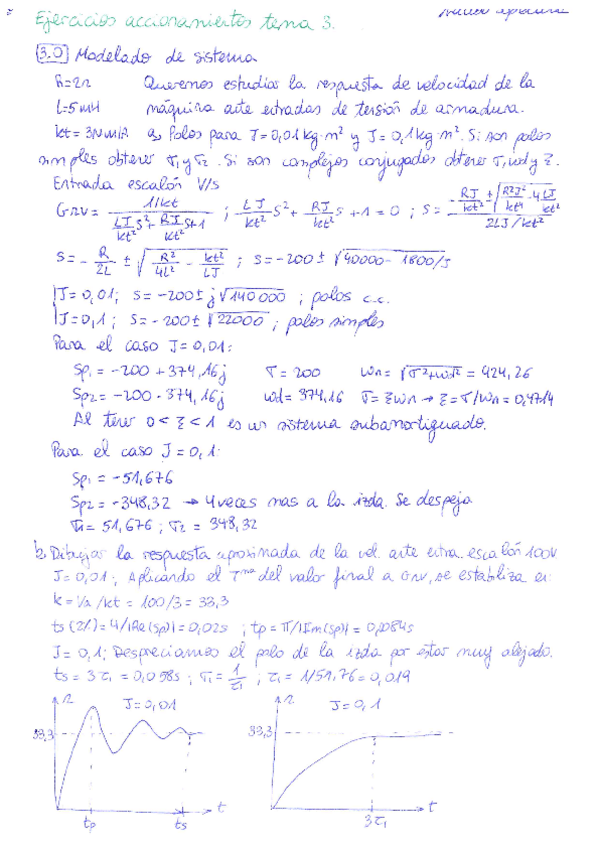 Ejercicios accionamientos tema 3.
3.0 Modelado de sistema
R=2Ω Queremos estudiar la respuesta de velocidad de la
L=5mH máquina ante entradas de tensión de armadura.
kt=3Nm/A a) Polos para J=0,01kg·m² y J=0,1kg·m². Si son polos
simples obtener σ1 y σ2. Si son complejos conjugados obtener σ, ωd y ξ.
Entrada escalón V/s
GΩV = (1/kt)/(LJ/kt² S² + RJ/kt² S + 1) ; LJ/kt² S² + RJ/kt² S + 1 = 0 ; S = (-RJ/kt² ± √(R²J²/kt⁴ - 4LJ/kt²))/(2LJ/kt²)
S = -R/2L ± √(R²/4L² - kt²/LJ) ; S = -200 ± √(40000 - 1800/J)
J=0,01; S = -200 ± j√140000 ; polos c.c.
J=0,1; S = -200 ± √22000 ; polos simples
Para el caso J=0,01:
Sp1 = -200 + 374,16j σ = 200 ωn = √(σ²+ωd²) = 424,26
Sp2 = -200 - 374,16j ωd = 374,16 σ = ξωn → ξ = σ/ωn = 0,4714
Al tener 0 < ξ < 1 es un sistema subamortiguado.
Para el caso J=0,1:
Sp1 = -51,676
Sp2 = -348,32 → 4 veces mas a la izda. Se despeja
σ1 = 51,676 ; σ2 = 348,32
b. Dibujar la respuesta aproximada de la vel. ante entra. escalón 100V
J=0,01; Aplicando el Tma del valor final a GΩV, se estabiliza en:
k = Va/kt = 100/3 = 33,3
ts (2%) = 4/|Re(sp)| = 0,02s ; tp = π/|Im(sp)| = 0,0084s
J=0,1; Despreciamos el polo de la izda por estar muy alejado.
ts = 3τ1 = 0,058s ; σ1 = 1/τ1 ; τ1 = 1/51,76 = 0,019
Ω J=0,01
33,3
tp ts t
Ω J=0,1
33,3
3τ1 t